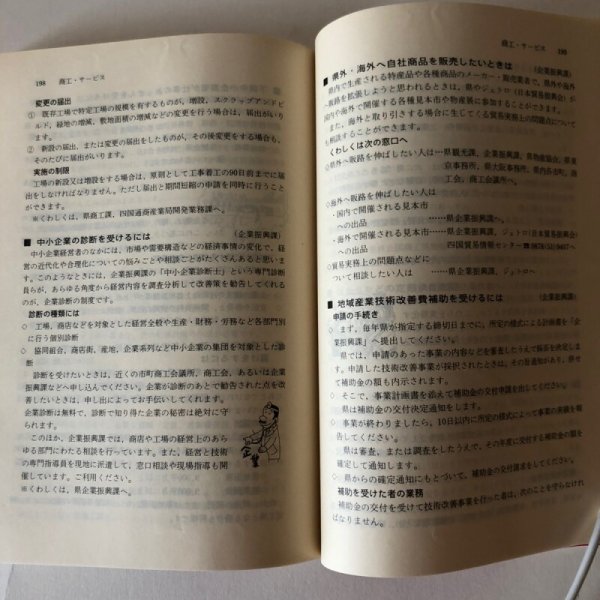 198　商工・サービス
変更の届出
① 既存工場で特定工場の規模を有するものが，増設，スクラップアンドビ
ルド，緑地の増減，敷地面積の増減などの変更を行う場合は，届出がい
ります。
② 新設の届出，または変更の届出をしたものが，その後変更をする場合も，
そのたびに届出がいります。
実施の制限
工場の新設又は増設をする場合は，原則として工事着工の90日前までに届出
をしなければなりません。ただし届出と期間短縮の申請を同時に行うことが
できます。
※くわしくは，県商工課，四国通商産業局開発業務課へ。
■ 中小企業の診断を受けるには　（企業振興課）
中小企業経営者のなかには，市場や需要構造などの経済事情の変化で，経
営の近代化や合理化についての悩みごとや相談ごとがたくさんあると思いま
す。このようなときには，企業振興課の「中小企業診断士」という専門診断
員らが，あらゆる角度から経営内容を調査分析して改善策を勧告してくれる
のが，企業診断の制度です。
診断の種類には
◇ 工場，商店などを対象とした経営全般や生産・財務・労務など各部門別
に行う個別診断
◇ 協同組合，商店街，産地，企業系列など中小企業の集団を対象とした診
断
診断を受けたいときは，近くの市町商工会議所，商工会，あるいは企業
振興課などへ申し込んでください。企業が診断のあとで勧告された点を改
善したいときは，申し出によってお手伝いしてくれます。
企業診断は無料で，診断で知り得た企業の秘密は絶対に守
られます。
このほか，企業振興課では，商店や工場の経営上のあら
ゆる部門にわたる相談を行っています。また，経営と技術
の専門指導員を現地に派遣して，窓口相談や現場指導も開
催しています。ご利用ください。
※くわしくは，県企業振興課へ。
商工・サービス　199
■ 県外・海外へ自社商品を販売したいときは　（企業振興課）
県内で生産される特産品や各種商品のメーカー・販売業者で，県外や海外
へ販路を拡張しようと思われるときは，県やジェトロ（日本貿易振興会）が
国内や海外で開催する各種見本市や物産展に参加することができます。
また，海外と取り引きする場合に生じてくる貿易実務上の問題点について
も相談することができます。
くわしくは次の窓口へ
◇県外へ販路を伸ばしたい人は…県観光課，企業振興課，県物産協会，県東
京事務所，県大阪事務所，県内各市町，商
工会，商工会議所へ。
◇海外へ販路を伸ばしたい人は
・国内で開催する見本市
への出品　……県企業振興課へ。
・海外で開催する見本市　……県企業振興課，ジェトロ（日本貿易振興会）
への出品　四国貿易情報センター
◇貿易実務上の問題点などに
ついて相談したい人は　……県企業振興課，ジェトロへ
■ 地域産業技術改善費補助を受けるには　（企業振興課）
申請の手続き
◇ まず，毎年県が指定する締切日までに，所定の様式による計画書を「企
業振興課」へ提出してください。
◇ 県では，申請のあった事業の内容などを審査したうえで採否を決定しま
す。申請した技術改善事業が採択されたときは，その旨通知があり，併せ
て補助金の額も内示されます。
◇ そこで，事業計画書を添えて補助金の交付申請を出してください。
◇ 県は補助金の交付決定通知をします。
◇ 事業が終わりましたら，10日以内に所定の様式によって事業の実績を報
告してください。
◇ 県は審査，または調査をしたうえで，その年度に交付する補助金の額を
確定して通知します。
◇ 県からの確定通知にもとづいて，補助金の交付請求をしてください。
補助を受けた者の業務
補助金の交付を受けて技術改善事業を行った者は，次のことを守らなけれ
ばなりません。